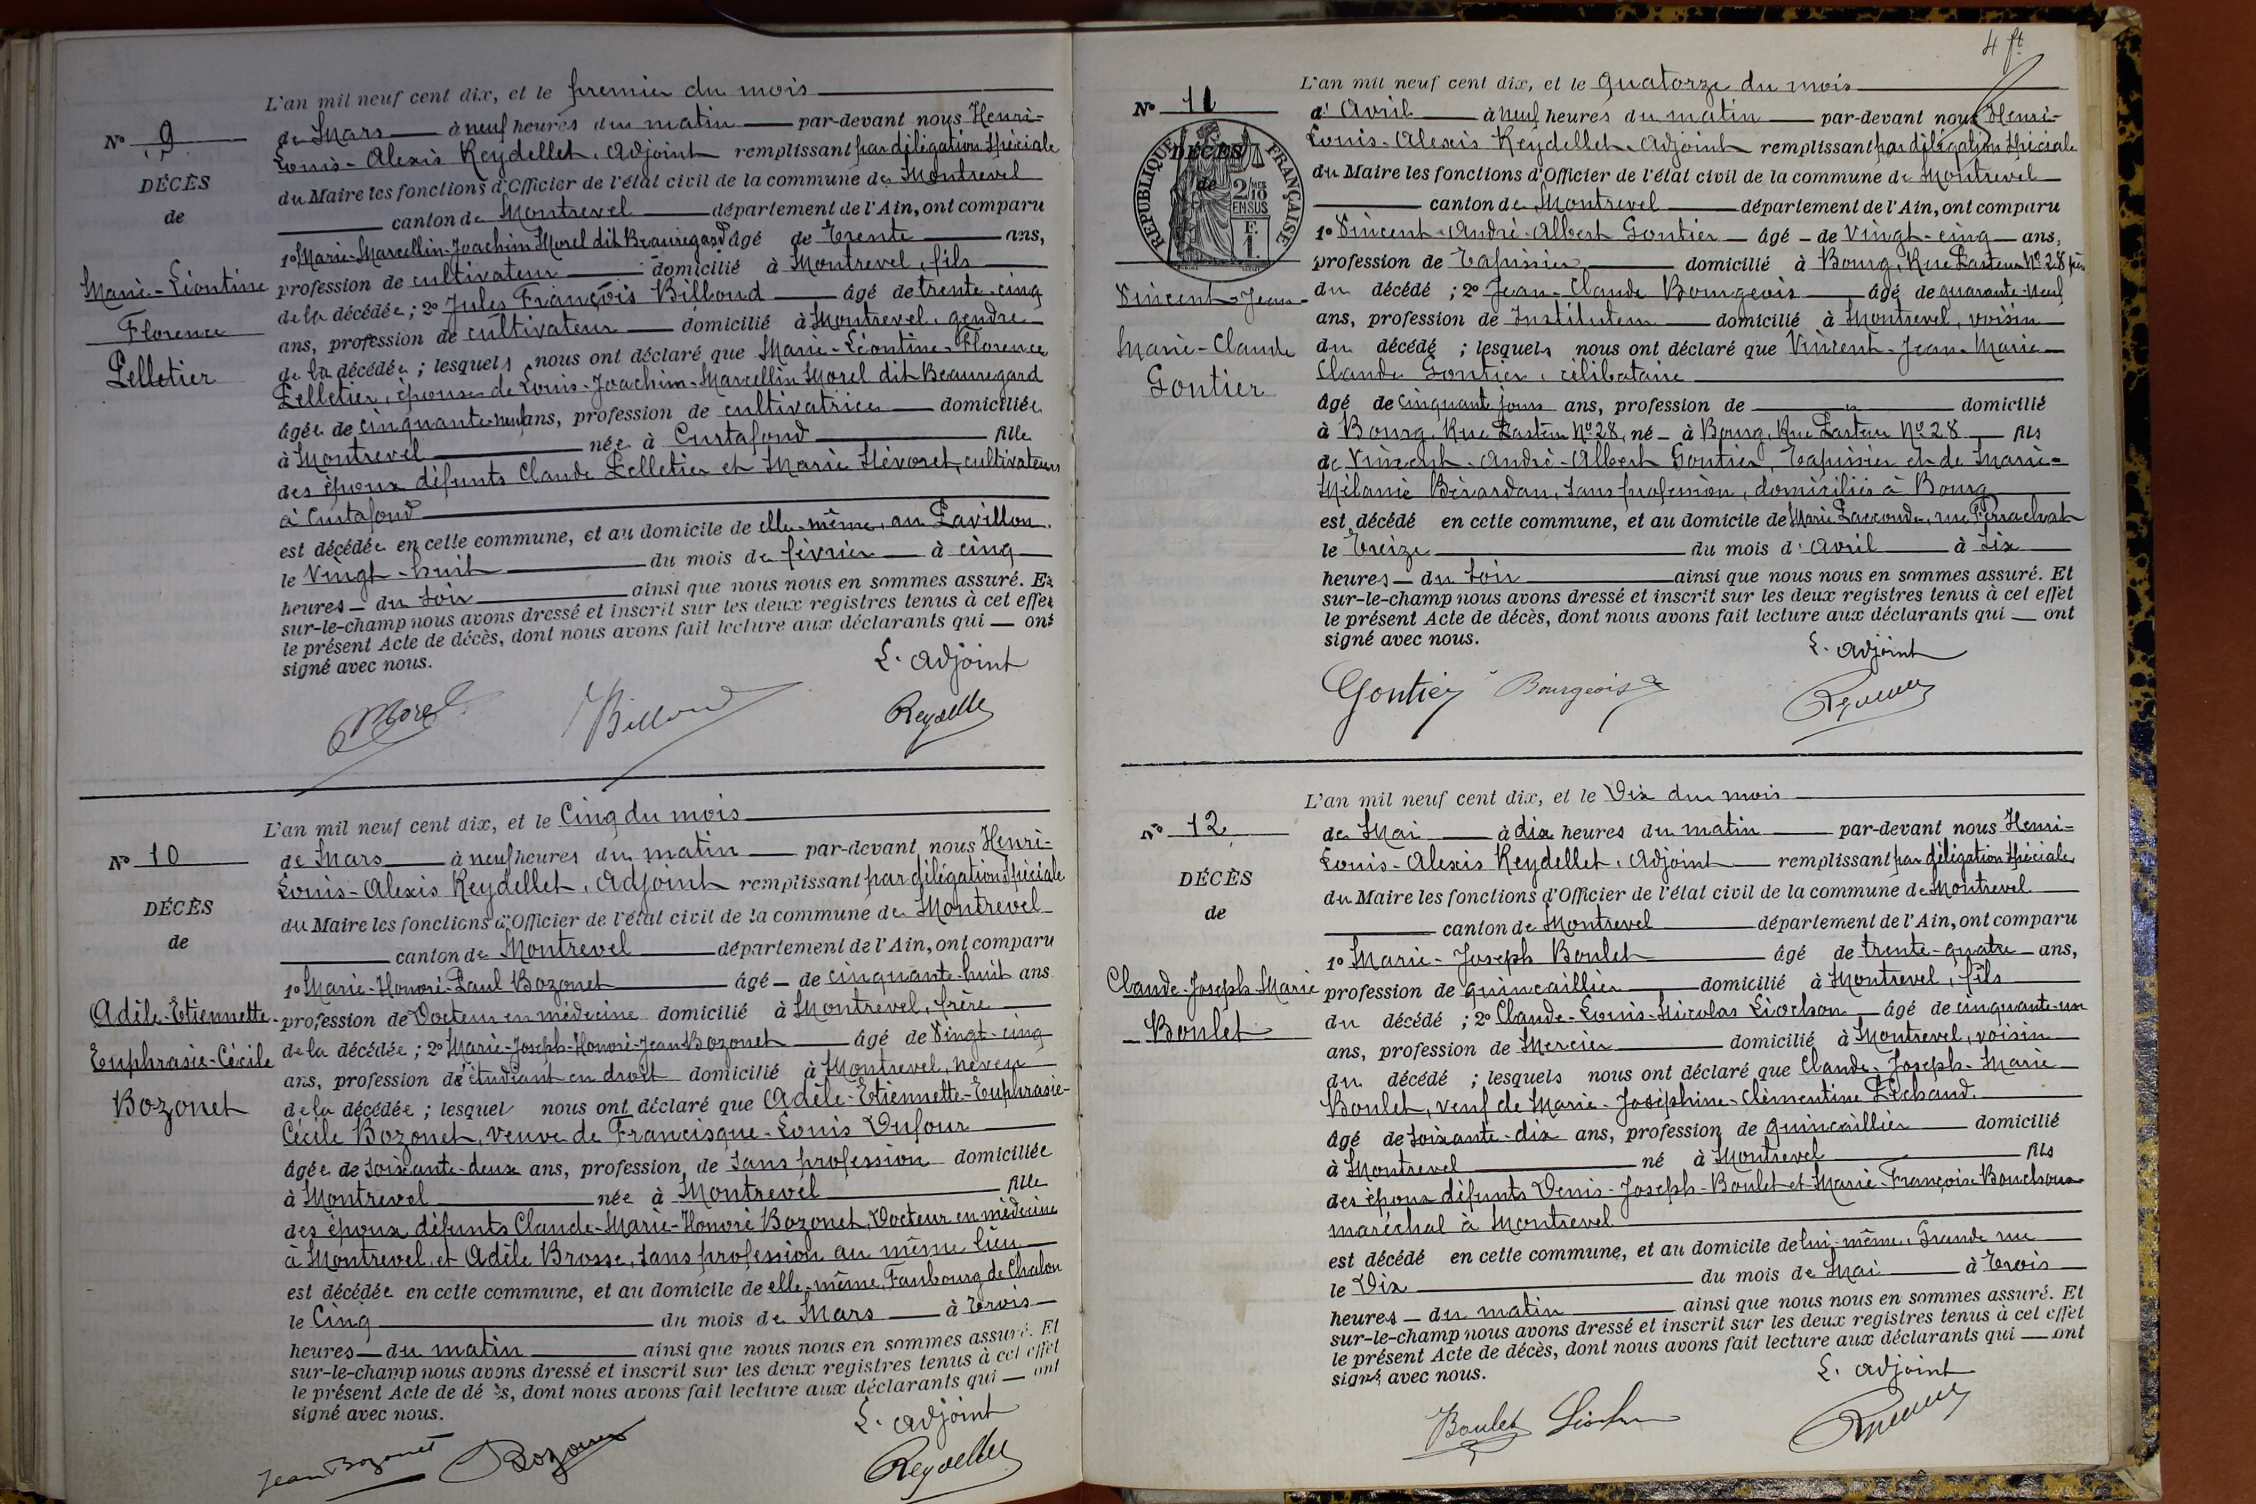 L'an mil neuf cent dix, et le premier du mois
N° 9
de Mars à neuf heures du matin par-devant nous Henri-
Louis-Alexis Reydellet, Adjoint remplissant par délégation spéciale
DÉCÈS
du Maire les fonctions d'Officier de l'état civil de la commune de Montrevel
de
canton de Montrevel département de l'Ain, ont comparu
1° Marie-Marcellin-Joachim Morel dit Beauregard âgé de trente ans,
Marie-Léontine
profession de cultivateur domicilié à Montrevel, fils
Florence
de la décédée ; 2° Jules François Billoud âgé de trente-cinq
Pelletier
ans, profession de cultivateur domicilié à Montrevel, gendre
de la décédée ; lesquels nous ont déclaré que Marie-Léontine-Florence
Pelletier, épouse de Louis-Joachim-Marcellin Morel dit Beauregard
âgée de cinquante-neuf ans, profession de cultivatrice domiciliée
à Montrevel née à Curtafond fille
des époux défunts Claude Pelletier et Marie Hévoret, cultivateurs
à Curtafond
est décédée en cette commune, et au domicile de elle-même, au Pavillon.
le vingt-huit du mois de février à cinq
heures du soir ainsi que nous nous en sommes assuré. Et
sur-le-champ nous avons dressé et inscrit sur les deux registres tenus à cet effet
le présent Acte de décès, dont nous avons fait lecture aux déclarants qui ont
signé avec nous.
L. adjoint
Morel Billoud Reydellet
L'an mil neuf cent dix, et le Cinq du mois
N° 10
de Mars à neuf heures du matin par-devant nous Henri-
Louis-Alexis Reydellet, Adjoint remplissant par délégation spéciale
DÉCÈS
du Maire les fonctions d'Officier de l'état civil de la commune de Montrevel
de
canton de Montrevel département de l'Ain, ont comparu
1° Marie-Honoré-Paul Bozonet âgé de cinquante-huit ans
Adèle-Etiennette-
profession de Docteur en médecine domicilié à Montrevel, frère
Euphrasie-Cécile
de la décédée ; 2° Marie-Joseph-Honoré-Jean Bozonet âgé de vingt-cinq
ans, profession de étudiant en droit domicilié à Montrevel, neveu
Bozonet
de la décédée ; lesquels nous ont déclaré que Adèle-Etiennette-Euphrasie-
Cécile Bozonet, veuve de Francisque-Louis Dufour
âgée de soixante-deux ans, profession de sans profession domiciliée
à Montrevel née à Montrevel fille
des époux défunts Claude-Marie-Honoré Bozonet, Docteur en médecine
à Montrevel, et Adèle Brosse, sans profession au même lieu
est décédée en cette commune, et au domicile de elle-même, Faubourg de Chalon
le Cinq du mois de Mars à trois
heures du matin ainsi que nous nous en sommes assuré. Et
sur-le-champ nous avons dressé et inscrit sur les deux registres tenus à cet effet
le présent Acte de décès, dont nous avons fait lecture aux déclarants qui ont
signé avec nous.
L. adjoint
Jean Bozonet Bozonet Reydellet
4 ft
L'an mil neuf cent dix, et le quatorze du mois
N° 11
d'Avril à neuf heures du matin par-devant nous Henri-
Louis-Alexis Reydellet, Adjoint remplissant par délégation spéciale
DÉCÈS
de
RÉPUBLIQUE FRANÇAISE
2/10 MES
EN SUS
F.
1.
du Maire les fonctions d'Officier de l'état civil de la commune de Montrevel
canton de Montrevel département de l'Ain, ont comparu
1° Vincent-André-Albert Gontier âgé de vingt-cinq ans,
profession de Tapissier domicilié à Bourg, Rue Pasteur N° 28 père
Vincent-Jean-
du décédé ; 2° Jean-Claude Bourgeois âgé de quarante-neuf
ans, profession de Instituteur domicilié à Montrevel, voisin
Marie-Claude
du décédé ; lesquels nous ont déclaré que Vincent-Jean-Marie
Gontier
Claude Gontier, célibataire
âgé de cinquante jours ans, profession de domicilié
à Bourg, Rue Pasteur N° 28, né à Bourg, Rue Pasteur N° 28 fils
de Vincent-André-Albert Gontier, Tapissier et de Marie-
Mélanie Bérardan, sans profession, domiciliés à Bourg
est décédé en cette commune, et au domicile de Marie rue Perrachat
le Treize du mois d'Avril à six
heures du soir ainsi que nous nous en sommes assuré. Et
sur-le-champ nous avons dressé et inscrit sur les deux registres tenus à cet effet
le présent Acte de décès, dont nous avons fait lecture aux déclarants qui ont
signé avec nous.
L. adjoint
Gontier Bourgeois
L'an mil neuf cent dix, et le Dix du mois
N° 12
de Mai à dix heures du matin par-devant nous Henri-
Louis-Alexis Reydellet, Adjoint remplissant par délégation spéciale
DÉCÈS
du Maire les fonctions d'Officier de l'état civil de la commune de Montrevel
de
canton de Montrevel département de l'Ain, ont comparu
1° Marie-Joseph Boulet âgé de trente-quatre ans,
Claude-Joseph-Marie
profession de quincaillier domicilié à Montrevel, fils
Boulet
du décédé ; 2° Claude-Louis-Nicolas Liochon âgé de cinquante-un
ans, profession de Mercier domicilié à Montrevel, voisin
du décédé ; lesquels nous ont déclaré que Claude-Joseph-Marie
Boulet, veuf de Marie-Joséphine-Clémentine Péchaud.
âgé de soixante-dix ans, profession de quincaillier domicilié
à Montrevel né à Montrevel fils
des époux défunts Denis-Joseph-Boulet et Marie-Françoise Bouchoux
maréchal à Montrevel
est décédé en cette commune, et au domicile de lui-même, Grande rue
le Dix du mois de Mai à trois
heures du matin ainsi que nous nous en sommes assuré. Et
sur-le-champ nous avons dressé et inscrit sur les deux registres tenus à cet effet
le présent Acte de décès, dont nous avons fait lecture aux déclarants qui ont
signé avec nous.
L. adjoint
Boulet Liochon